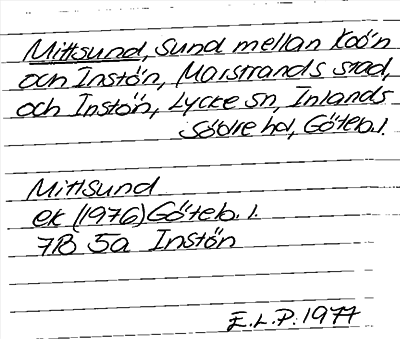 Mittsund, sund mellan Koö'n
och Instön, Marstrands stad,
och Instön, Lycke sn, Inlands
Södre hd, Göteb.l.
Mittsund
ek (1976) Göteb. l.
7B 5a Instön
E.L.P. 1977